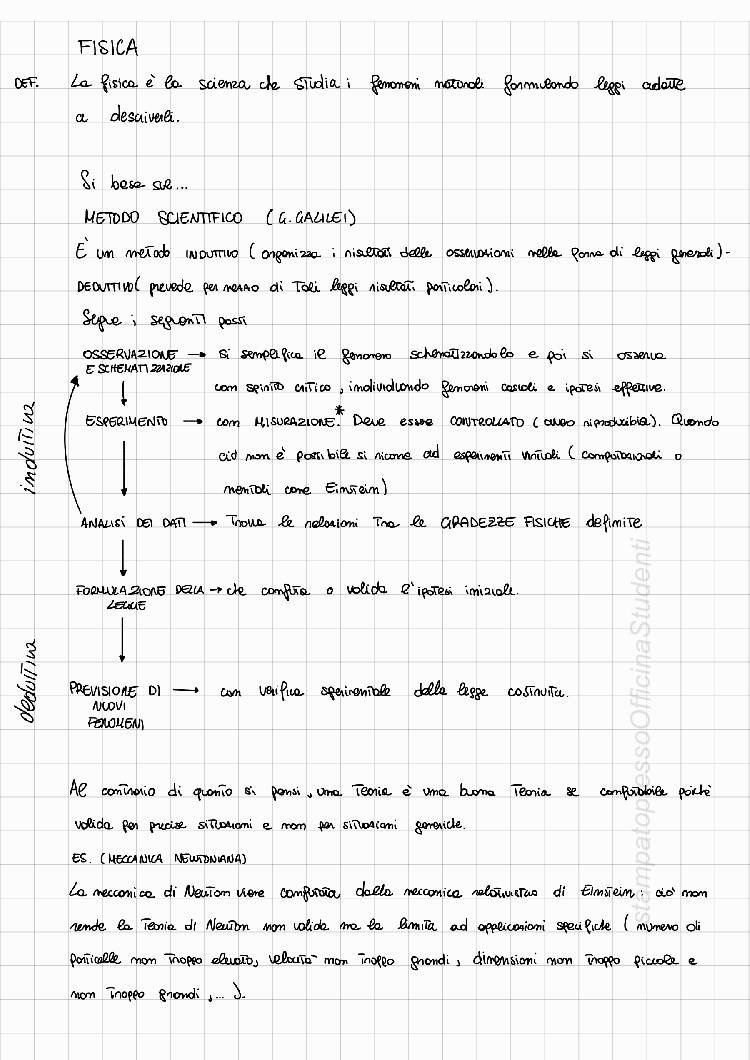 FISICA
DEF. La fisica è la scienza che studia i fenomeni naturali formulando leggi adatte
a descriverli.
Si basa su...
METODO SCIENTIFICO (G. GALILEI)
È un metodo INDUTTIVO (organizza i risultati delle osservazioni nella forma di leggi generali)-
DEDUTTIVO (prevede per mezzo di tali leggi risultati particolari).
Segue i seguenti passi
OSSERVAZIONE → si semplifica il fenomeno schematizzandolo e poi si osserva
E SCHEMATIZZAZIONE
con spirito critico, individuando fenomeni causali e ipotesi effettive.
induttiva
ESPERIMENTO → con MISURAZIONE.* Deve essere CONTROLLATO (ovvero riproducibile). Quando
ciò non è possibile si ricorre ad esperimenti virtuali (computazionali o
mentali come Einstein)
ANALISI DEI DATI → Trova le relazioni tra le GRADEZZE FISICHE definite
FORMULAZIONE DELLA → che confuta o valida l'ipotesi iniziale.
LEGGE
deduttiva
PREVISIONE DI → con verifica sperimentale della legge costruita.
NUOVI
FENOMENI
Al contrario di quanto si pensi, una teoria è una buona teoria se confutabile poiché
valida per precise situazioni e non per situazioni generiche.
ES. (MECCANICA NEWTONIANA)
La meccanica di Newton viene confutata dalla meccanica relativistica di Einstein: ciò non
rende la teoria di Newton non valida ma la limita ad applicazioni specifiche (numero di
particelle non troppo elevato, velocità non troppo grandi, dimensioni non troppo piccole e
non troppo grandi, ...).
stampatopressoOfficinaStudenti